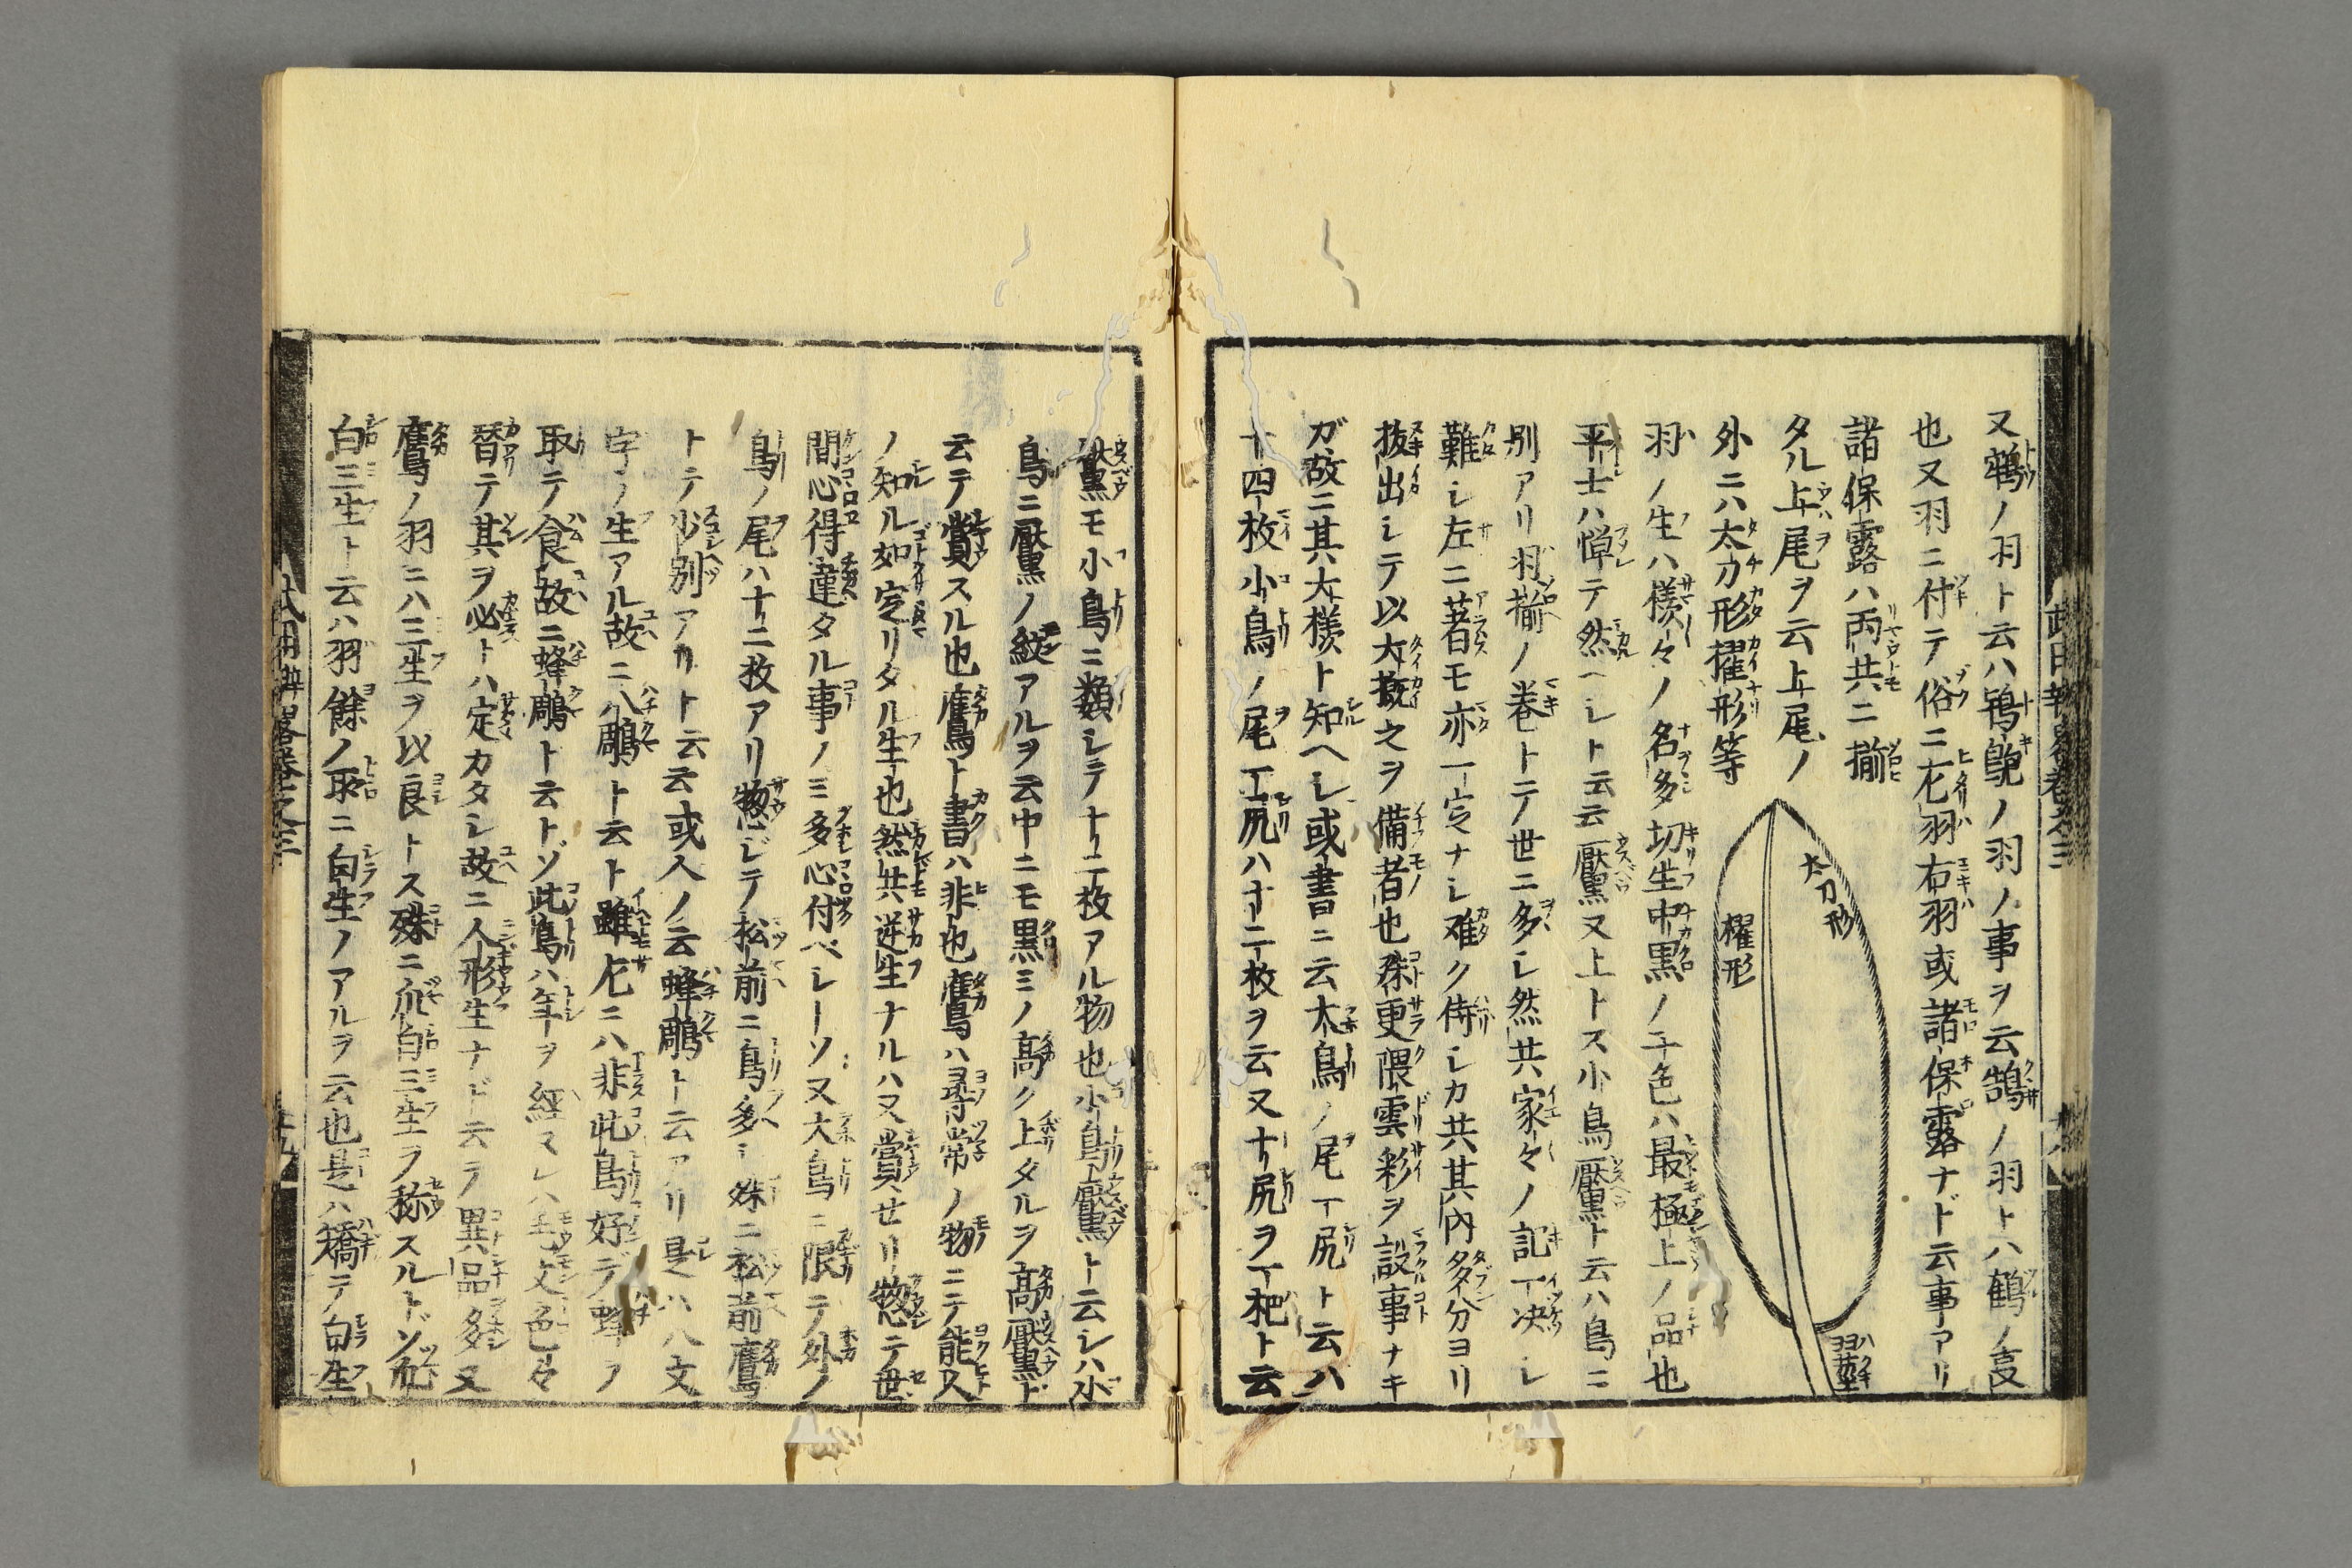 又鶇ノ羽ト云ハ鴇ノ羽ノ事ヲ云鵠ノ羽トハ鶴ノ
也又羽ニ付テ俗ニ左羽右羽或諸保露ナド云事アリ
諸保露ハ両共ニ揃
タル上尾ヲ云上尾ノ
外ニハ太刀形擢形等
太刀形
櫂形
羽莖
羽ノ生ハ様々ノ名多シ切生中黒ノ二色ハ最極上ノ品也
平士ハ憚テ然ヘシト云云黶又上トス小鳥黶ト云ハ鳥ニ
別アリ羽揃ノ巻トテ世ニ多シ然共家々ノ記一决シ
難シ左ニ著モ亦一定ナシ难ク侍シカ共其内多分ヨリ
抜出シテ以大概之ヲ備者也殊更隈雲彩ヲ設事ナキ
ガ故ニ其大様ト知ヘシ或書ニ云大鳥ノ尾一尻ト云ハ
十四枚小鳥ノ尾一尻ハ十二枚ヲ云又十尻ヲ一把ト云
モ小鳥ニ類シテ十二枚アル物也小鳥黶ト云シハ小
鳥ニ黶ノ綻アルヲ云中ニモ黒ミノ高ク上タルヲ高黶ト
云テ賞スル也鷹ト書ハ非也鷹ハ尋常ノ物ニテ能人
ノ知ル如定リタル生也然共逆生ナルハ又賞セリ惣テ世
間心得違タル事ノミ多シ心付ベシーツ又大鳥ニ限テ外ノ
鳥ノ尾ハ十二枚アリ惣ジテ松前ニ鳥多シ殊ニ松前鷹
トテ少別アカト云云或人ノ云蜂鵰ト云アリ是ハ八文
字ノ生アル故ニ八鵰ト云ト雖左ニハ非此鳥好デ蜂ヲ
取テ食故ニ蜂鵰ト云トゾ此鳥ハ年ヲ經ヌレハ毛文色々
替テ其ヲ必トハ定カタシ故ニ人形生ナド云ヲ異品多シ又
鷹ノ羽ニハ三生ヲ以良トス殊ニ爪白三生ヲ称スルトゾ爪
白三生ト云ハ羽餘ノ取ニ白生ノアルヲ云也是ハ矯テ白生